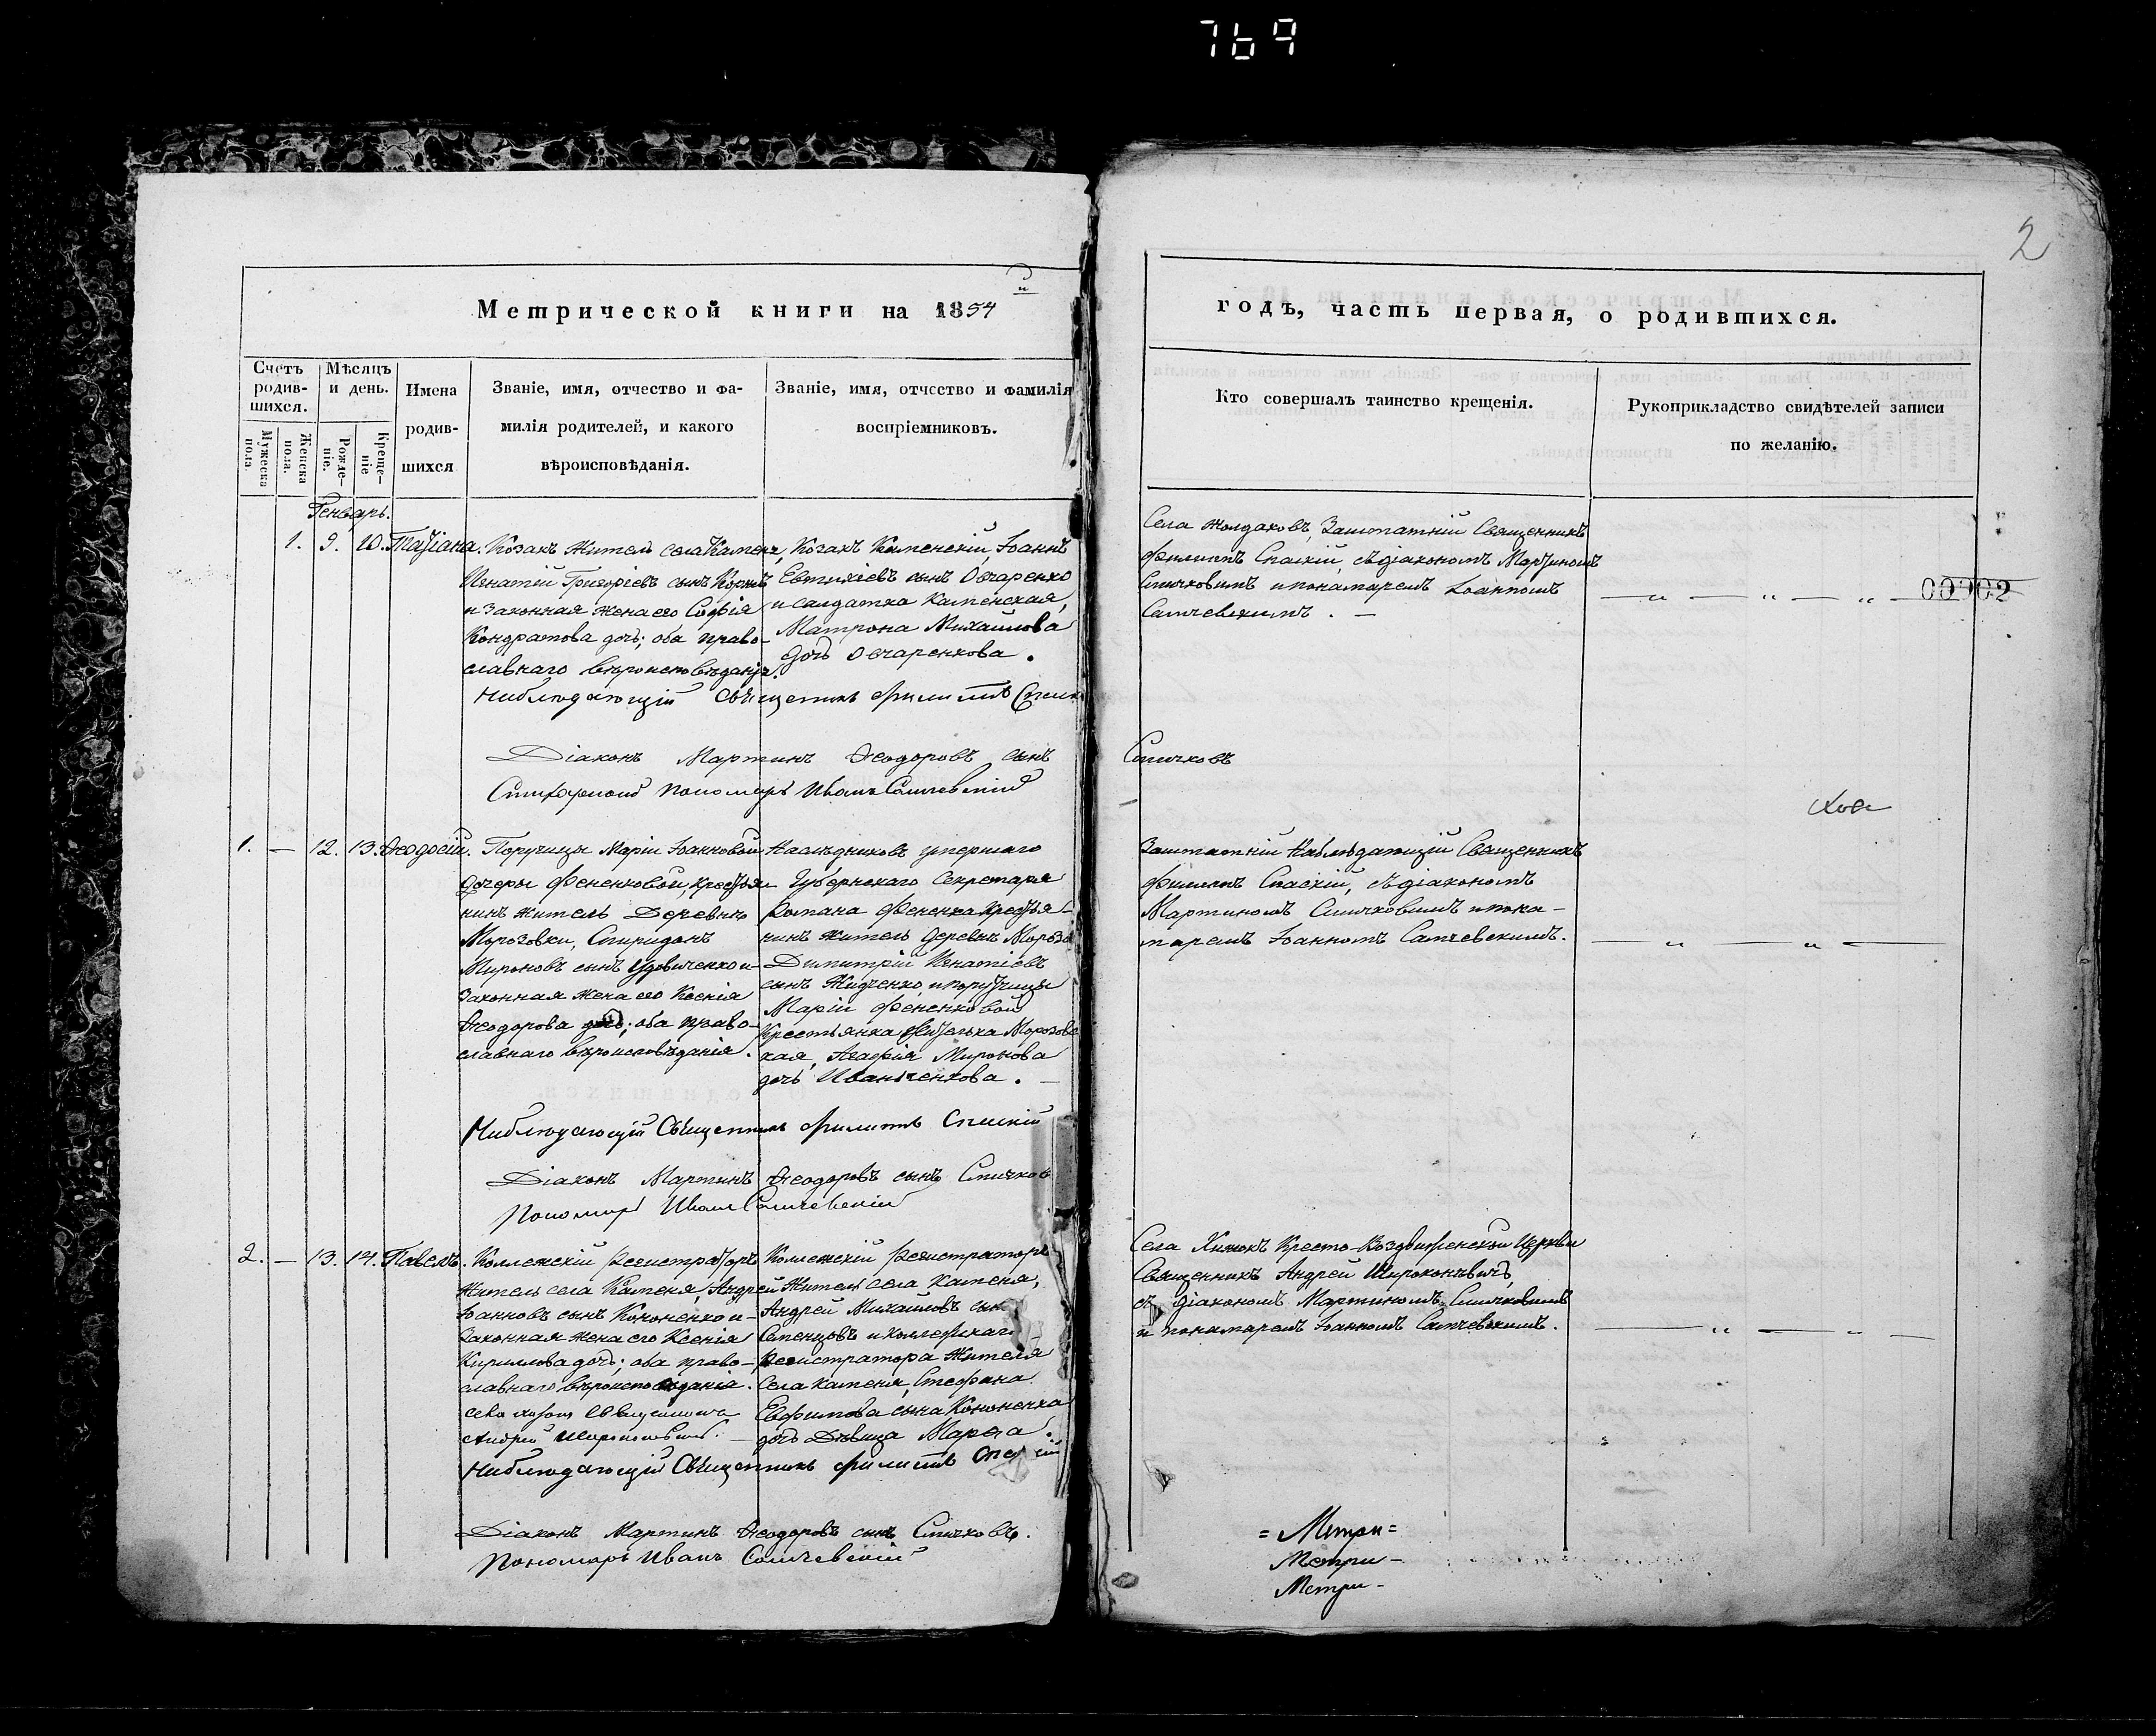 769
2
Метрической книги на 1854
й
годъ, часть первая, о родившихся.
Счетъ родив-шихся.
Мужеска пола.
Женска пола.
Мѣсяцъ и день.
Рожде-ніе.
Креще-ніе
Имена родив-шихся
Званіе, имя, отчество и фа-
милія родителей, и какого
вѣроисповѣданія.
Званіе, имя, отчество и фамилія
воспріемниковъ.
Кто совершалъ таинство крещенія.
Рукоприкладство свидѣтелей записи
по желанію.
Генварь.
1. 9. 10. Татіана.
Козакъ Житель села Каменя,
Игнатій Григоріевъ сынъ
и Законная жена его Софія
Кондратова дочь; оба право-
славнаго вѣроисповѣданія.
Козакъ Каменскій, Іоаннъ
Евтихіевъ сынъ Овчаренко
и салдатка Каменская,
Матрона Михаилова
дочь Овчаренкова.
Села Жолдаковъ, Заштатній Священникъ
Филиппъ Спаскій, съ діакономъ Мартиномъ
Спичковимъ и понамаремъ Іоанномъ
Самчевскимъ. —
00202
Наблюдающій Священникъ Филиппъ
Діаконъ Мартинъ Ѳеодоровъ сынъ
Спичковъ
Пономарь Иванъ Самчевскій
1. — 12. 13. Ѳеодосій.
Поручицы Маріи Іоанновой
дочеры Фененковой, крестья-
нинъ житель Деревни
Морозовки, Спиридонъ
Мироновъ сынъ Удовиченко и
Законная жена его Ксенія
Ѳеодорова дочь; оба право-
славнаго вѣроисповѣданія.
Наслѣдниковъ умершаго
Губернскаго Секретаря
Романа Фененка крестья-
нинъ житель деревни
Димитрій Игнатіевъ
сынъ Жидченко и поручицы
Маріи Фененковой
Крестьянка жителька
Агафія Миронова
дочь Иваниенкова. —
Заштатній Наблюдающій Священникъ
Филиппъ Спаскій, съ діакономъ
Мартиномъ Спичковимъ и пона-
маремъ Іоанномъ Самчевскимъ.
Наблюдающій Священникъ Филиппъ Спаскій
Діаконъ Мартинъ Ѳеодоровъ сынъ Спичковъ
Пономарь Иванъ Самчевскій
2. — 13. 14. Павелъ.
Коллежскій Регистраторъ
Житель села Каменя, Андрей
Іоанновъ сынъ Кононенко и
Законная жена его Ксенія
Кириллова дочь; оба право-
славнаго вѣроисповѣданія.
Коллежскій Регистраторъ
Житель села Каменя,
Андрей Михаиловъ сынъ
и коллежскаго
Регистратора Жителя
Села Каменя, Стефана
Евфимова сына Кононенка
дочь Дѣвица Марѳа.
Села Кресто-Воздвиженской Церкви
Священникъ Андрей
съ діакономъ Мартиномъ Спичковимъ
и понамаремъ Іоанномъ Самчевскимъ.
Наблюдающій Священникъ Филиппъ
Діаконъ Мартинъ Ѳеодоровъ сынъ Спичковъ.
Пономарь Иванъ Самчевскій
= Метри =
Метри -
Метри -